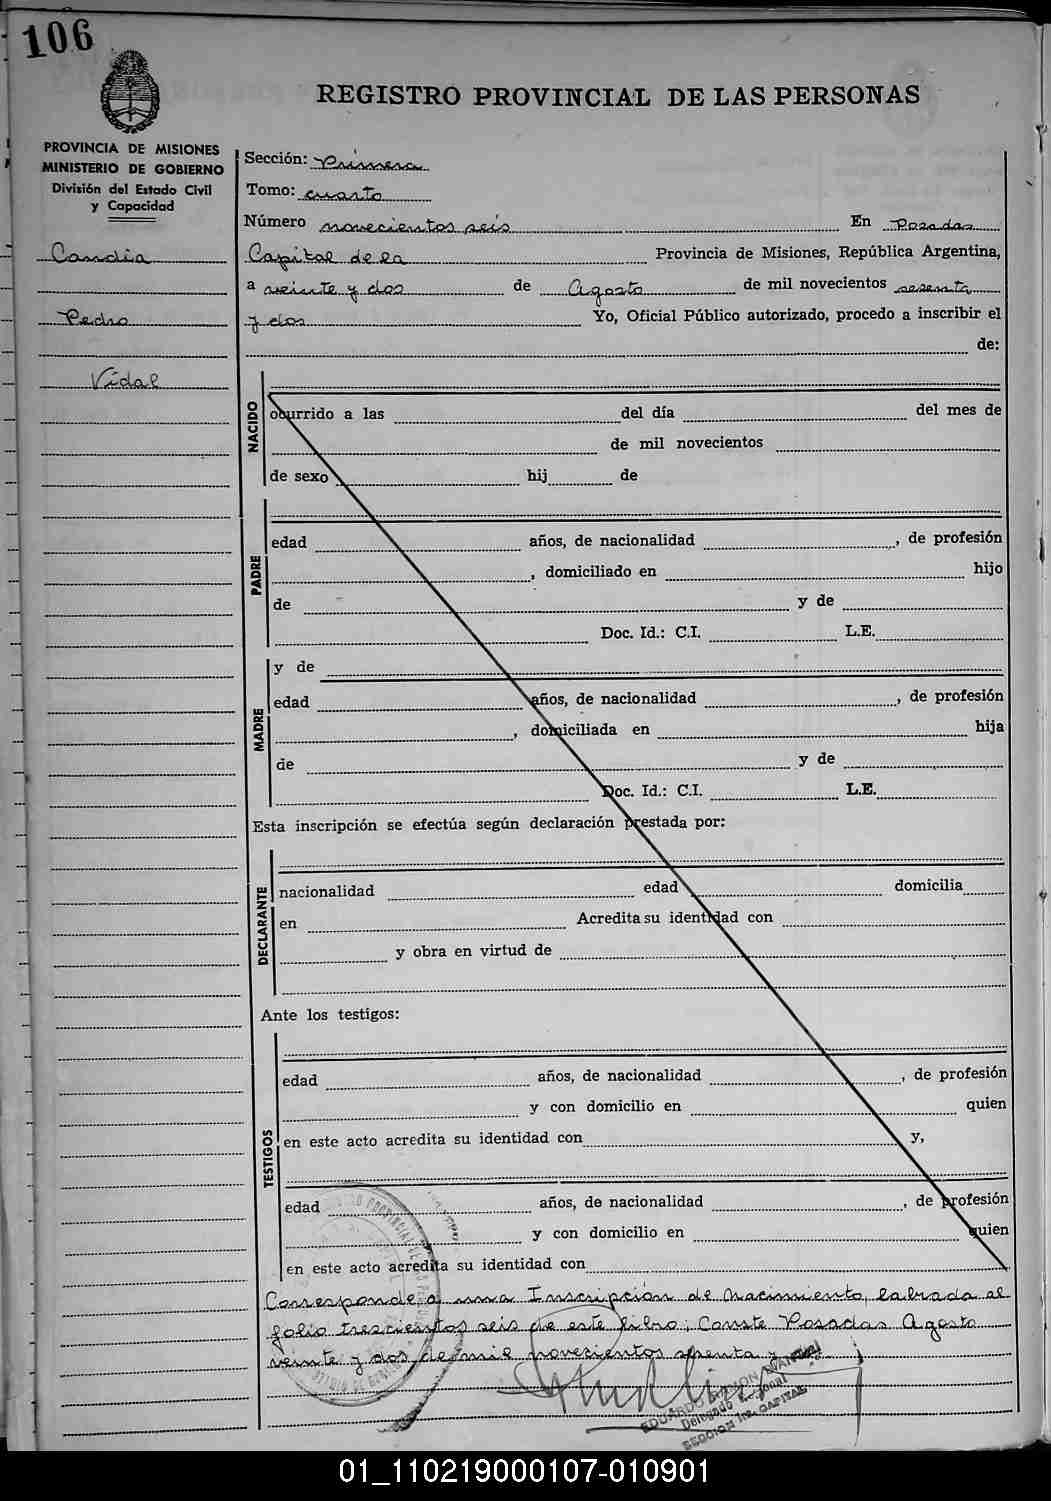 106
REGISTRO PROVINCIAL DE LAS PERSONAS
PROVINCIA DE MISIONES
MINISTERIO DE GOBIERNO
División del Estado Civil
y Capacidad
Candia
Pedro
Vidal
Sección: Primera
Tomo: cuarto
Número novecientos seis En Posadas
Capital de la Provincia de Misiones, República Argentina,
a veinte y dos de Agosto de mil novecientos sesenta
y dos Yo, Oficial Público autorizado, procedo a inscribir el
de:
NACIDO
ocurrido a las del día del mes de
de mil novecientos
de sexo hij de
PADRE
edad años, de nacionalidad , de profesión
, domiciliado en hijo
de y de
Doc. Id.: C.I. L.E.
MADRE
y de
edad años, de nacionalidad , de profesión
, domiciliada en hija
de y de
Doc. Id.: C.I. L.E.
Esta inscripción se efectúa según declaración prestada por:
DECLARANTE
nacionalidad edad domicilia
en Acredita su identidad con
y obra en virtud de
Ante los testigos:
TESTIGOS
edad años, de nacionalidad , de profesión
y con domicilio en quien
en este acto acredita su identidad con y,
edad años, de nacionalidad , de profesión
y con domicilio en quien
en este acto acredita su identidad con
Corresponde a una Inscripción de Nacimiento, labrada al
folio trescientos seis de este libro; Conste Posadas Agosto
veinte y dos de mil novecientos sesenta y dos
EDUARDO
Delegado Regional
SECCION 1ra. CAPITAL
01_110219000107-010901